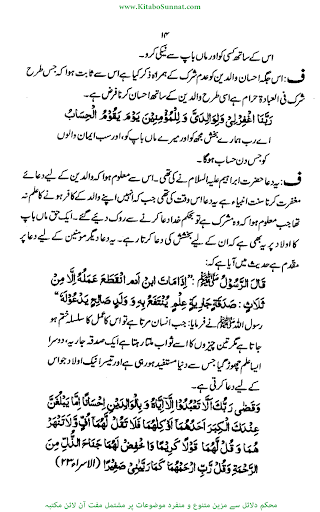 www.KitaboSunnat.com
۱۴
اس کے ساتھ کسی کو اور ماں باپ سے نیکی کرو۔
ف: اس جگہ احسان والدین کو عدم شرک کے ہمراہ ذکر کیا ہے اس سے ثابت ہوا کہ جس طرح
شرک فی العبادۃ حرام ہے اسی طرح والدین کے ساتھ احسان کرنا فرض ہے۔
رَبَّنَا اغْفِرْلِیْ وَلِوَالِدَیَّ وَ لِلْمُؤْمِنِیْنَ یَوْمَ یَقُوْمُ الْحِسَابُ
اے رب ہمارے بخش مجھ کو اور میرے ماں باپ کو، اور سب ایمان والوں
کو جس دن حساب ہوگا۔
ف: یہ دعا حضرت ابراہیم علیہ السلام نے کی تھی۔ اس سے معلوم ہوا کہ والدین کے لیے دعائے
مغفرت کرنا سنت انبیاء ہے یہ دعا اس وقت کی تھی جب کہ انہیں اپنے والد کے کافر ہونے کا علم نہ
تھا جب معلوم ہوا کہ وہ مشرک ہے تو بحکم خدا دعا کرنے سے روک دیئے گئے۔ ایک حق ماں باپ
کا اولاد پر یہ بھی ہے کہ ان کے لیے بخشش کی دعا کرتا رہے۔ یہ دعا دیگر مومنین کے لیے دعا پر
مقدم ہے حدیث میں آیا ہے کہ:
قَالَ الرَّسُوْلُ ﷺ : ’’اِذَا مَاتَ ابْنُ اٰدَمَ انْقَطَعَ عَمَلُهٗ اِلَّا مِنْ
ثَلَاثٍ : صَدَقَةٍ جَارِيَةٍ عِلْمٍ يُنْتَفَعُ بِهٖ وَ وَلَدٍ صَالِحٍ يَدْعُوْلَهٗ‘‘
رسول اللہ ﷺ نے فرمایا: جب انسان مرتا ہے تو اس کا عمل کا سلسلہ ختم ہو
جاتا ہے مگر تین چیزوں کا اسے ثواب ملتا رہتا ہے ایک صدقہ جاریہ، دوسرا
ایسا علم چھوڑ گیا جس سے دنیا مستفید ہو رہی ہے اور تیسرا نیک اولاد جو اس
کے لیے دعا کرتی ہے۔
وَقَضٰی رَبُّكَ اَلَّا تَعْبُدُوْا اِلَّآ اِیَّاهُ وَ بِالْوَالِدَیْنِ اِحْسَانًا اِمَّا یَبْلُغَنَّ
عِنْدَكَ الْكِبَرَ اَحَدُهُمَا اَوْ كِلٰهُمَا فَلَا تَقُلْ لَّهُمَا اُفٍّ وَّلَا تَنْهَرْ
هُمَا وَ قُلْ لَّهُمَا قَوْلًا كَرِیْمًا وَاخْفِضْ لَهُمَا جَنَاحَ الذُّلِّ مِنَ
الرَّحْمَةِ وَ قُلْ رَّبِّ ارْحَمْهُمَا كَمَا رَبَّیٰنِیْ صَغِیْرًا (الاسراء ۲۳)
محکم دلائل سے مزین متنوع و منفرد موضوعات پر مشتمل مفت آن لائن مکتبہ